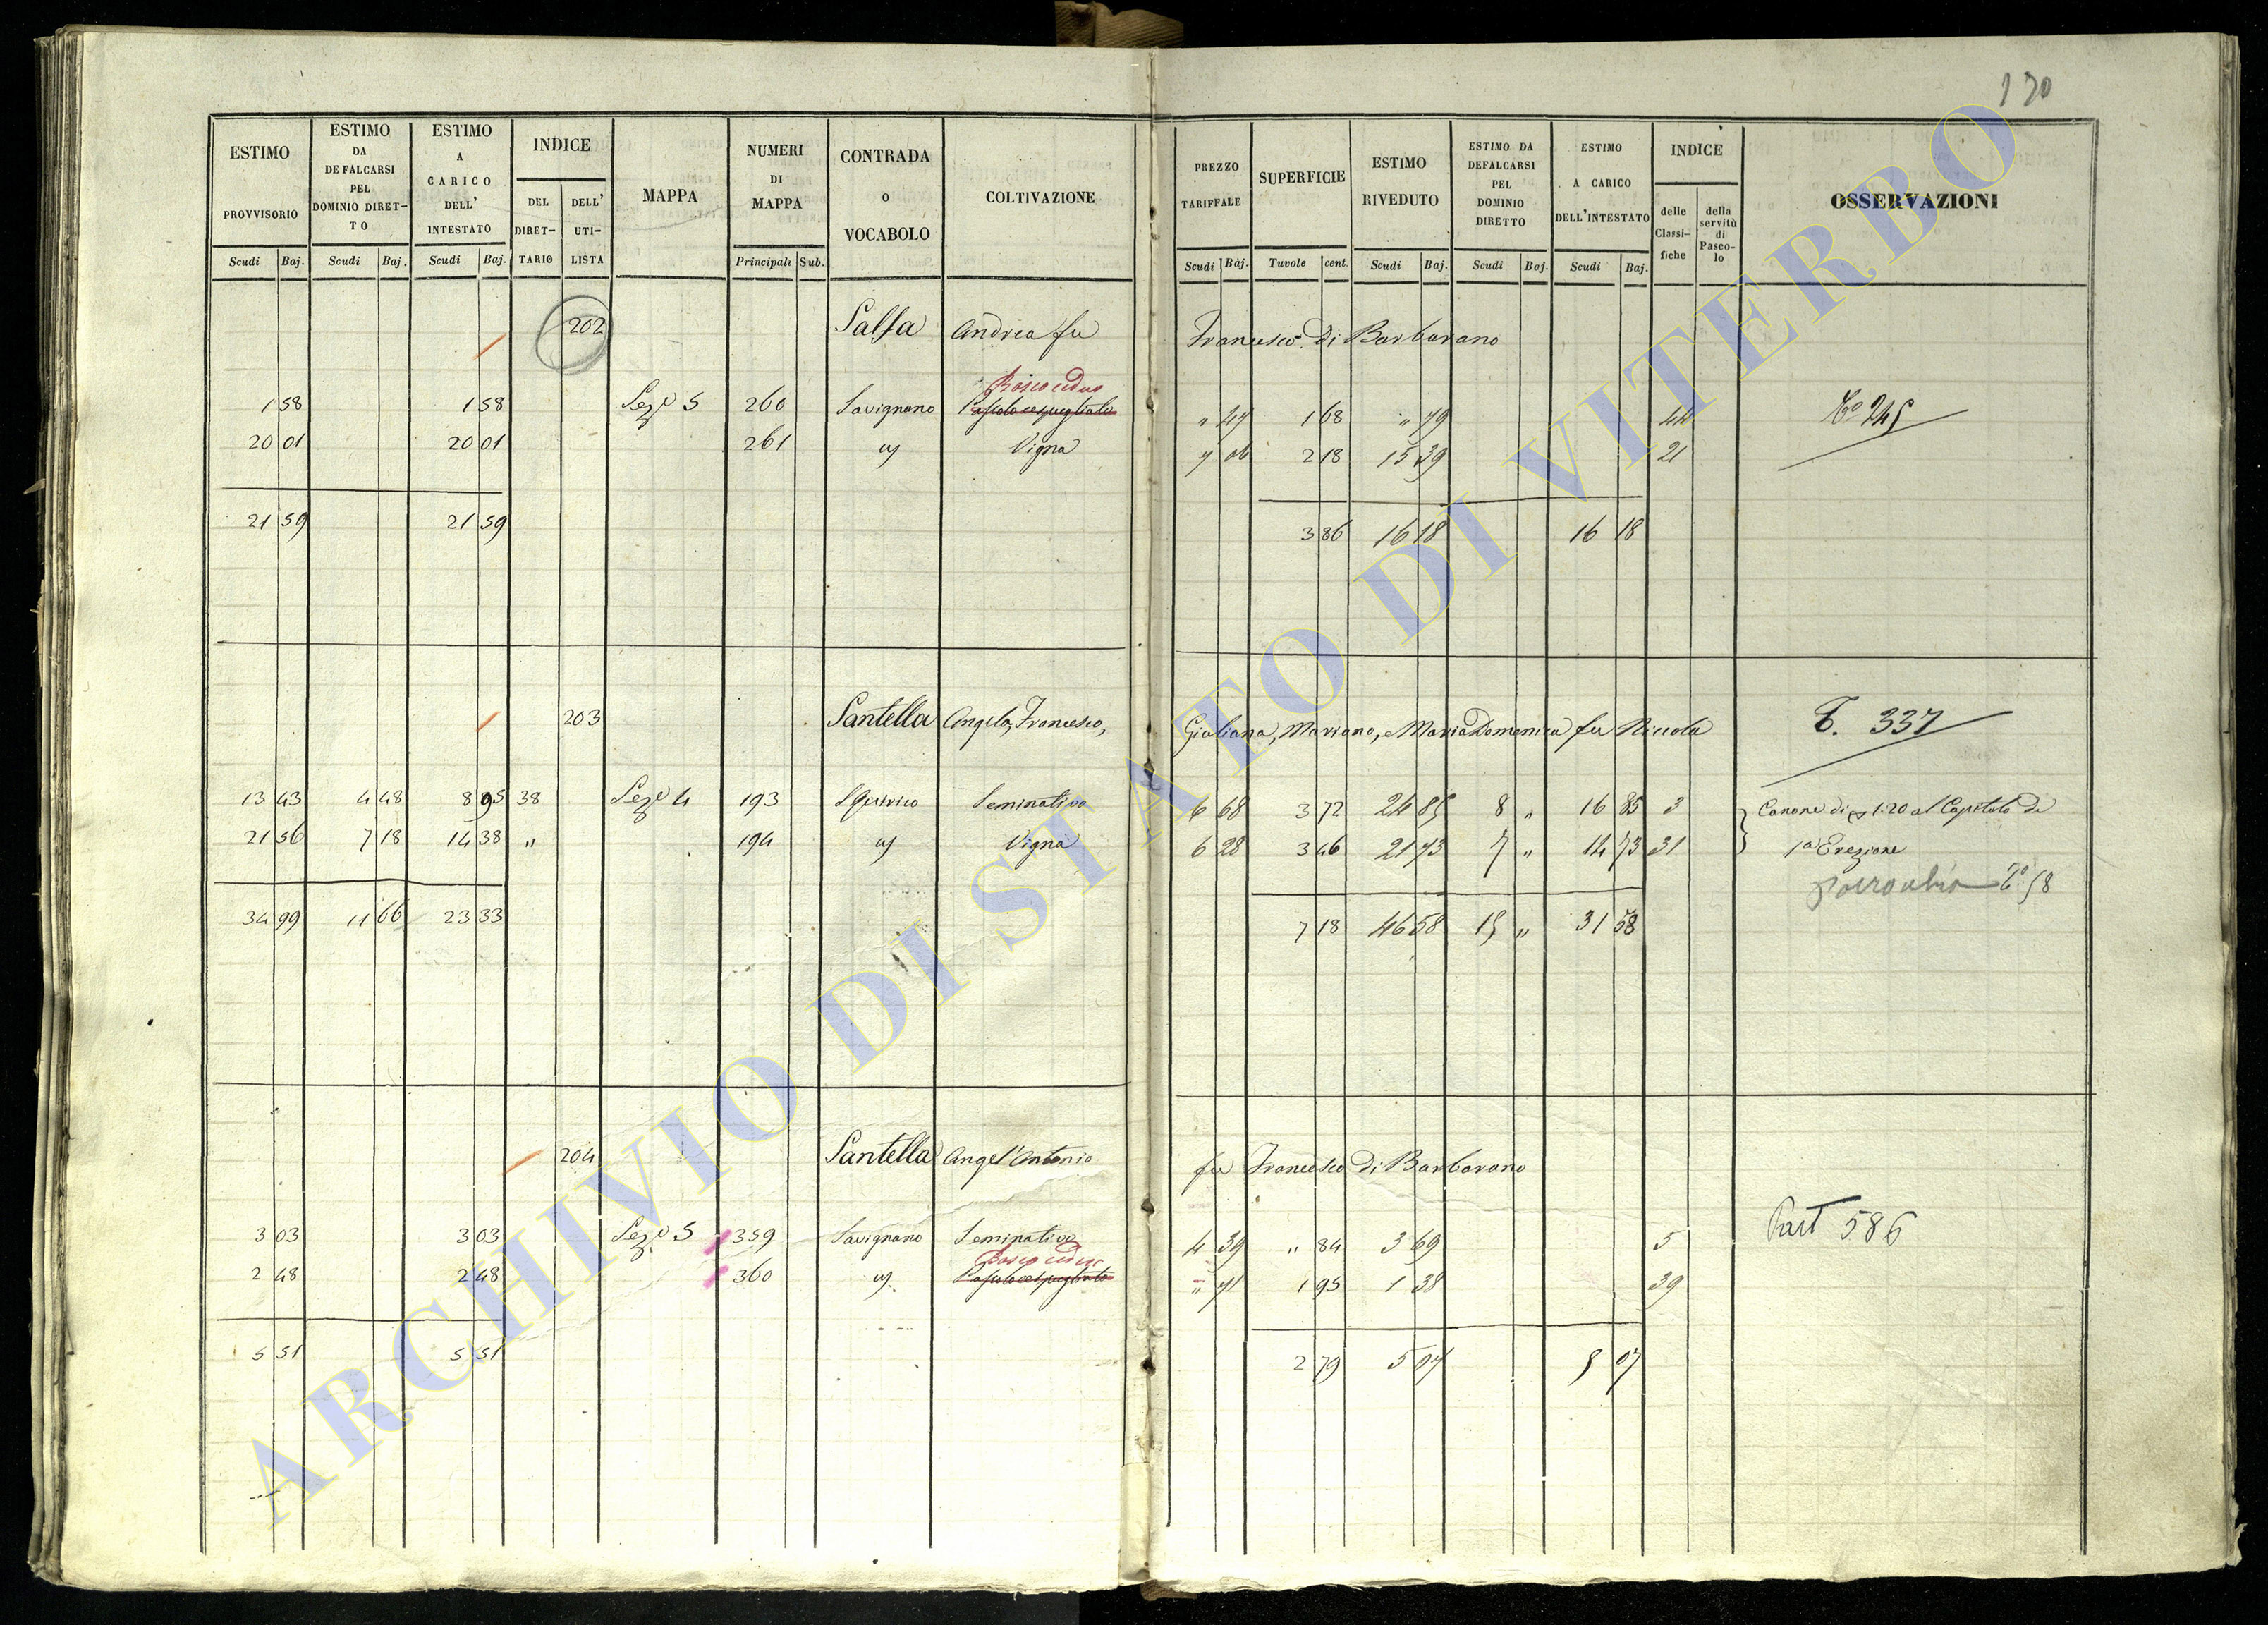 170
ESTIMO PROVVISORIO | ESTIMO DA DEFALCARSI PEL DOMINIO DIRETTO | ESTIMO A CARICO DELL' INTESTATO | INDICE DEL DIRETTARIO | DELL' UTILISTA | MAPPA | NUMERI DI MAPPA | CONTRADA o VOCABOLO | COLTIVAZIONE | PREZZO TARIFFALE | SUPERFICIE | ESTIMO RIVEDUTO | ESTIMO DA DEFALCARSI PEL DOMINIO DIRETTO | ESTIMO A CARICO DELL'INTESTATO | INDICE delle Classifiche | della servitù di Pascolo | OSSERVAZIONI
Scudi Baj. | Scudi Baj. | Scudi Baj. | Principali Sub. | Scudi Baj. | Tavole cent. | Scudi Baj. | Scudi Baj. | Scudi Baj.
202 Salsa Andrea fu Francesco di Barbarano
Bosco ceduo
1 58 | 1 58 | Sez.e 5 | 260 | Savignano | Pascolo cespugliato | " 47 | 1 68 | " 79 | 44 | To 245
20 01 | 20 01 | 261 | " | Vigna | 7 06 | 2 18 | 15 39 | 21
21 59 | 21 59 | 3 86 | 16 18 | 16 18
203 Santella Angelo, Francesco, Giuliana, Mariano, e Maria Domenica fu Niccola T. 337
13 43 | 4 48 | 8 95 | 38 | Sez.e 4 | 193 | S Quirico | Seminativo | 6 68 | 3 72 | 24 85 | 8 " | 16 85 | 3 | Canone di 1:20 al Capitolo di
21 56 | 7 18 | 14 38 | " | 194 | " | Vigna | 6 28 | 3 46 | 21 73 | 7 " | 14 73 | 31 | 1a Erezione
To 58
34 99 | 11 66 | 23 33 | 7 18 | 46 58 | 15 " | 31 58
204 Santella Angel'Antonio fu Francesco di Barbarano
Part 586
3 03 | 3 03 | Sez.e 5 | 359 | Savignano | Seminativo | 4 39 | " 84 | 3 69 | 5
Bosco ceduo
2 48 | 2 48 | 360 | " | Pascolo cespugliato | " 71 | 1 95 | 1 38 | 39
5 51 | 5 51 | 2 79 | 5 07 | 5 07
ARCHIVIO DI STATO DI VITERBO